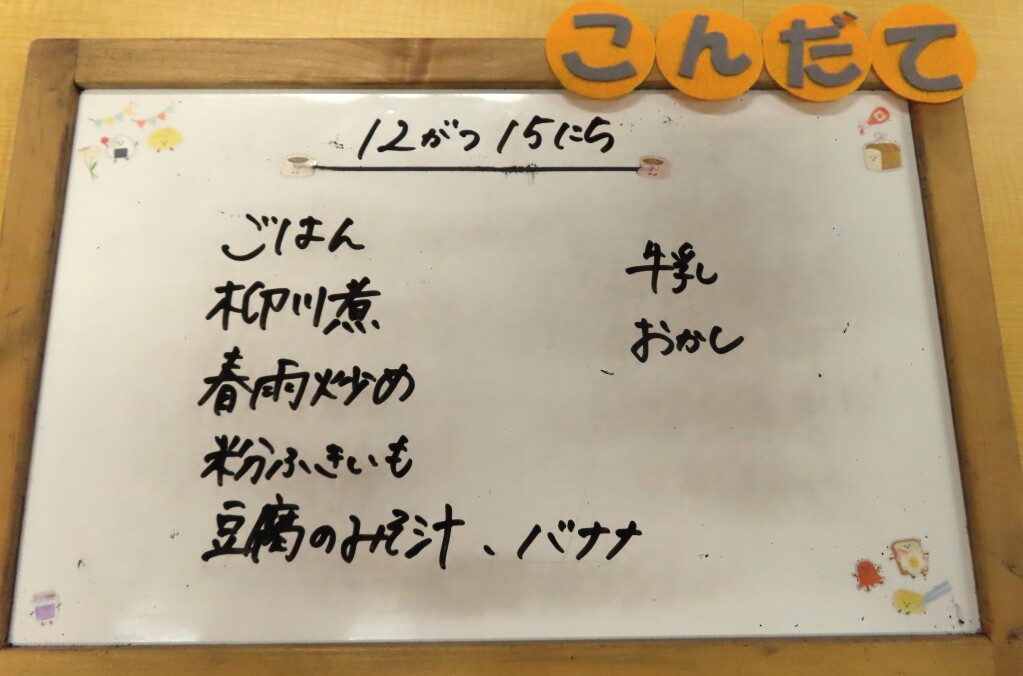 こんだて
12がつ15にち
ごはん
柳川煮
春雨炒め
粉ふきいも
豆腐のみそ汁、バナナ
牛乳
おかし